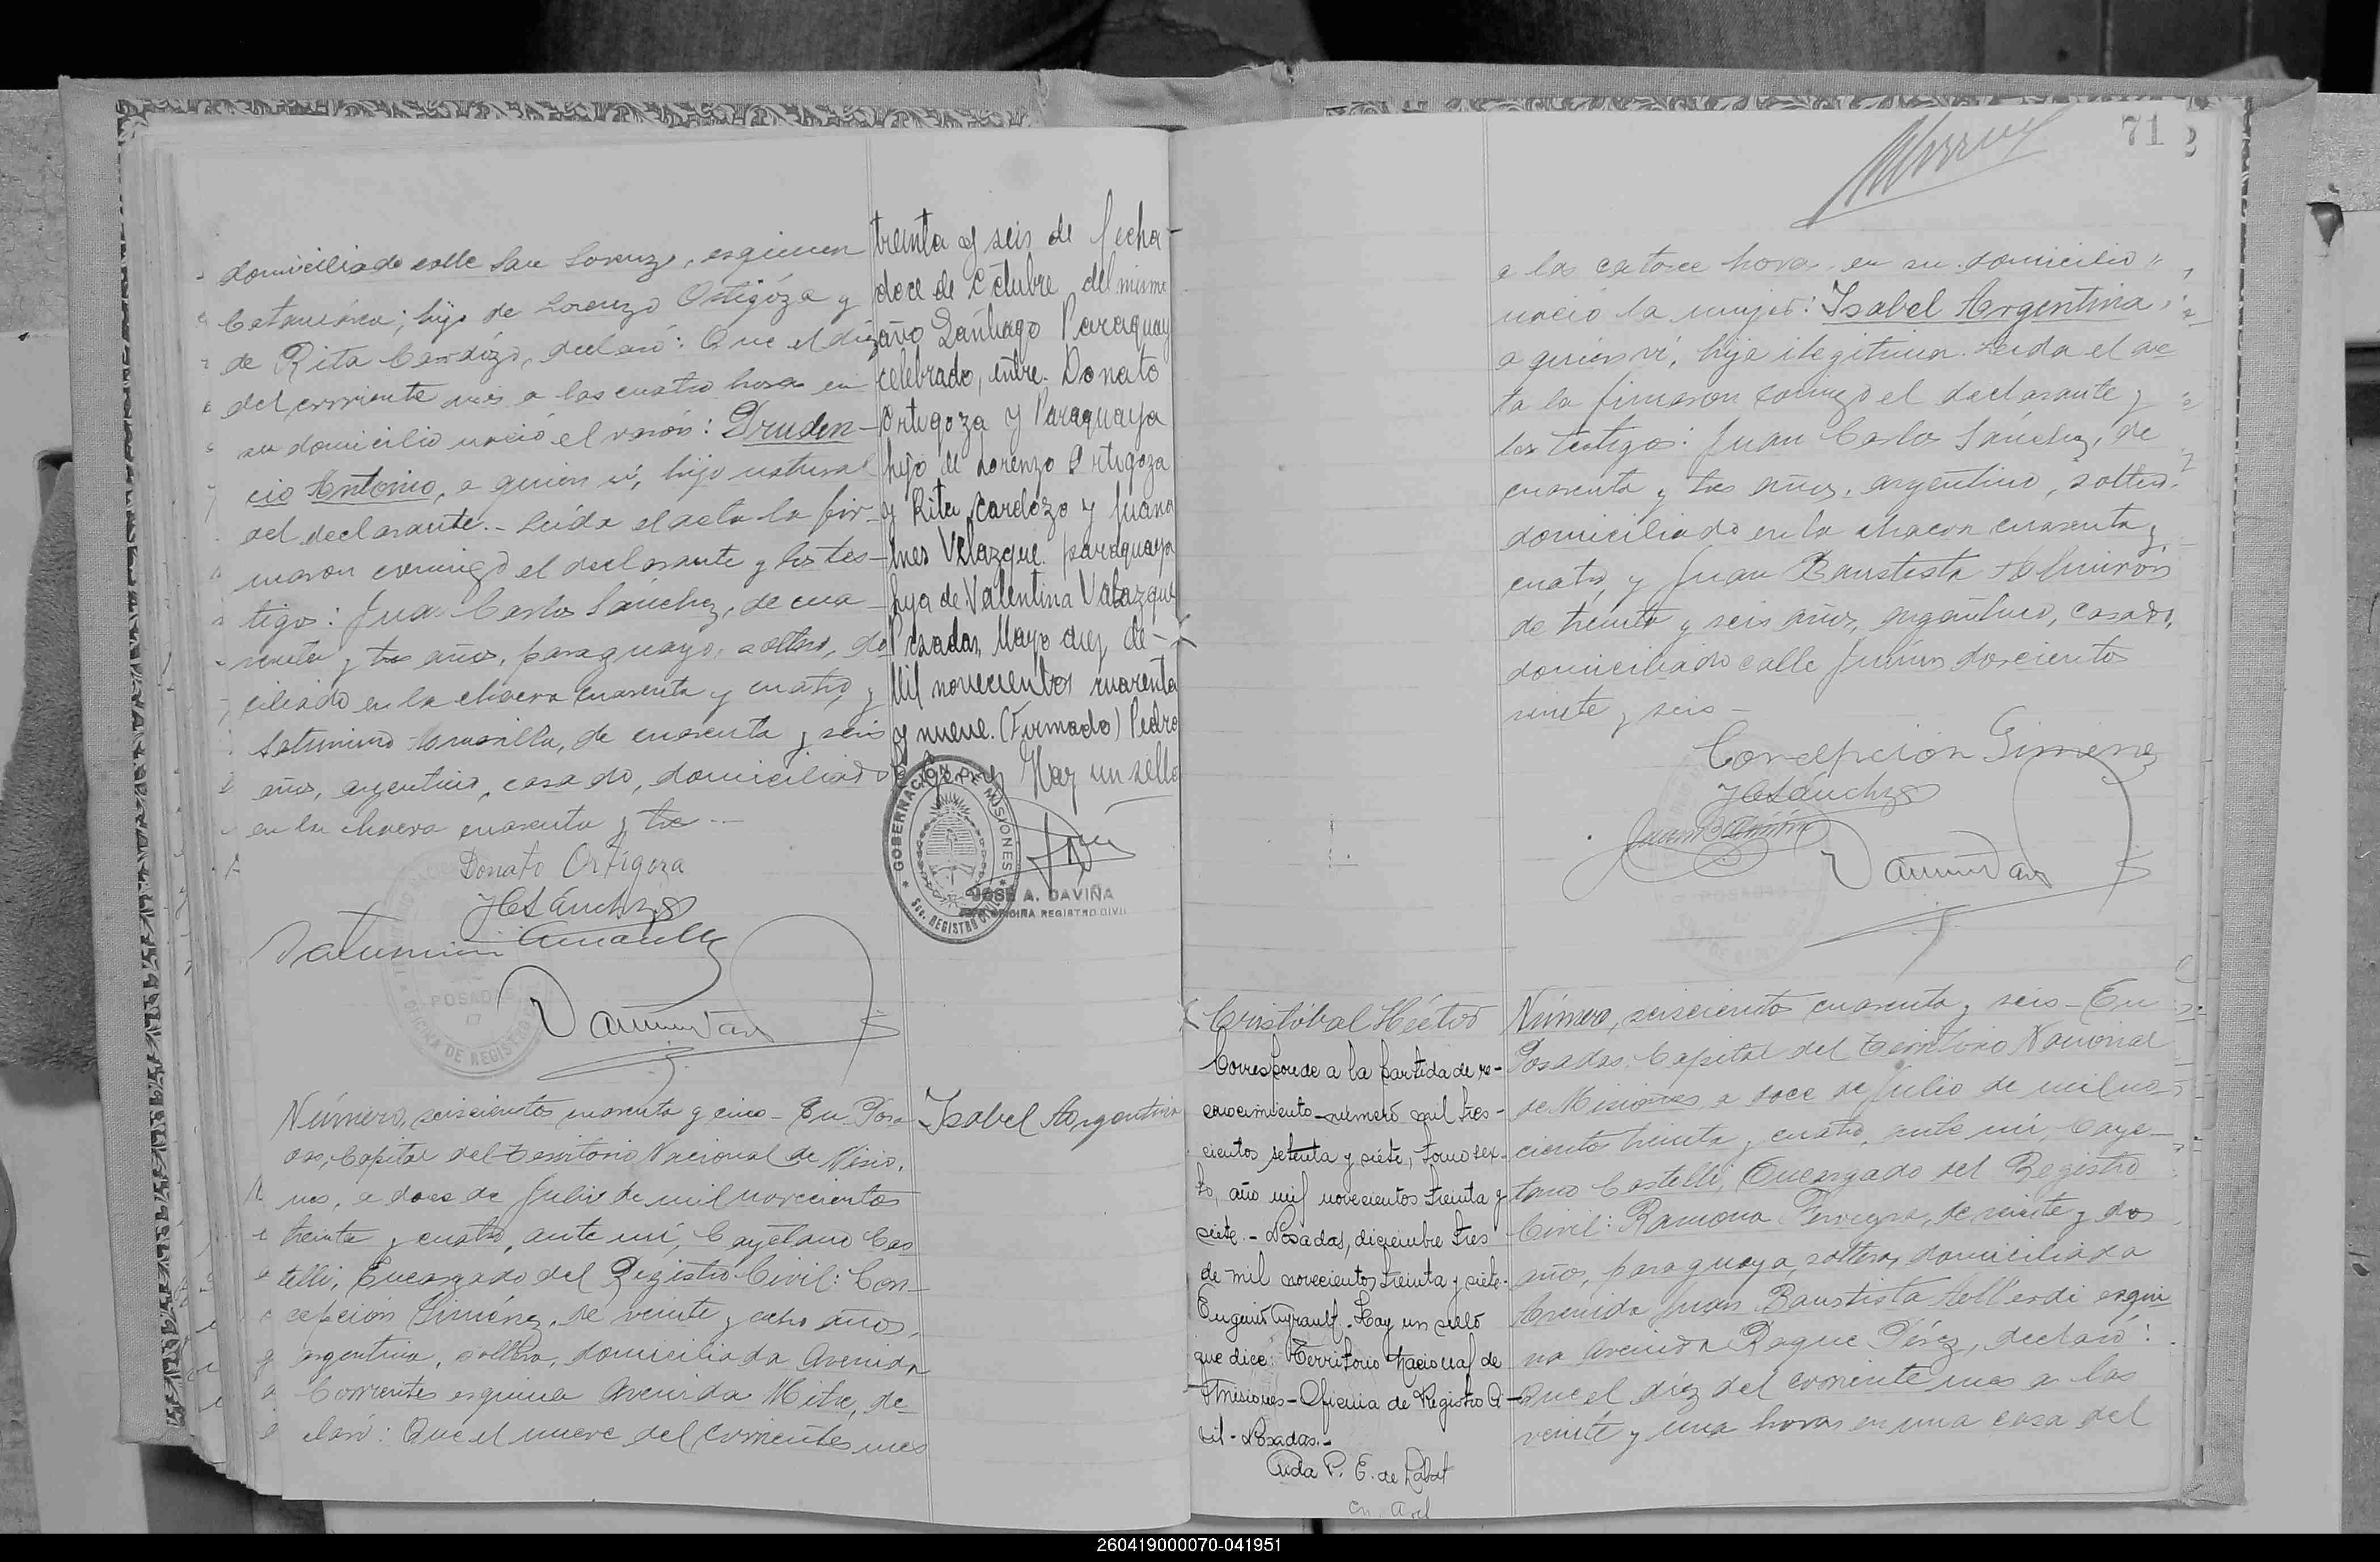 domiciliado calle San Lorenzo, esquina
Catamarca; hijo de Lorenzo Ortigóza y
de Rita Cardózo, declaró: Que el diez
del corriente mes a las cuatro horas en
su domicilio nació el varón: Pruden-
cio Antonio, a quien vi, hijo natural
del declarante.- Leída el acta la fir-
maron conmigo el declarante y los tes-
tigos: Juan Carlos Sánchez, de cua-
renta y tres años, paraguayo, soltero, do
ciliado en la chacra cuarenta y cuatro, y
Saturnino Amarilla, de cuarenta y seis
años, argentino, casado, domiciliado
en la chacra cuarenta y tres
Donato Ortigoza
JCSánchez
Saturnino Amarilla
POSADAS
OFICINA DE REGISTRO
treinta y seis de fecha
doce de Octubre del mismo
año Santiago Paraguay
celebrado, entre. Donato
Ortigoza y Paraguaya
hijo de Lorenzo Ortigoza
y Rita Cardozo y Juana
Ines Velazque. paraguaya
hija de Valentina Valazque
Posadas, Mayo diez de-
Mil novecientos cuarenta
y nueve. (Firmado) Pedro
Hay un sello
GOBERNACION DE MISIONES
SEC. REGISTRO CIVIL
JOSE A. DAVIÑA
OFICINA REGISTRO CIVIL
Número, seiscientos cuarenta y cinco- En Posa-
das, Capital del Territorio Nacional de Misio-
nes, a doce de Julio de mil novecientos
treinta y cuatro, ante mí, Cayetano Cas
telli, Encargado del Registro Civil: Con-
cepción Giménez, de veinte y ocho años,
argentina, soltera, domiciliada Avenida
Corrientes esquina Avenida Mitre, de-
claró: Que el nueve del corriente mes
Isabel Argentina
71
2
a las catorce horas, en su domicilio
nació la mujer: Isabel Argentina,
a quien vi, hija ilegitima. Leida el ac
ta la firmaron conmigo el declarante y
los testigos: Juan Carlos Sánchez, de
cuarenta y tres años, argentino, soltero,
domiciliado en la chacra cuarenta y
cuatro, y Juan Baustista Almirón
de treinta y seis años, argentino, casado,
domiciliado calle Junin doscientos
veinte y seis-
Concepción Gimenez
JCSánchez
Juan B Almirón
Cristóbal Héctor
Corresponde a la partida de re-
conocimiento número mil tres-
cientos setenta y siete, tomo sex-
to, año mil novecientos treinta y
siete.- Posadas, diciembre tres
de mil novecientos treinta y siete.
Eugenio Ayrault. Hay un sello
que dice: Territorio Nacional de
Misiones-Oficina de Registro Ci-
vil-Posadas.-
Aida P. E. de
Número, seiscientos cuarenta y seis- En
Posadas, Capital del Territorio Nacional
de Misiones a doce de Julio de mil no-
vecientos treinta y cuatro, ante mí, Caye-
tano Castelli, Encargado del Registro
Civil: Ramona Ferreyra, de veinte y dos
años, paraguaya, soltera, domiciliada
Avenida Juan Baustista Alberdi esqui
na Avenida Roque Pérez, declaró:
Que el diez del corriente mes a las
veinte y una horas en una casa del
260419000070-041951